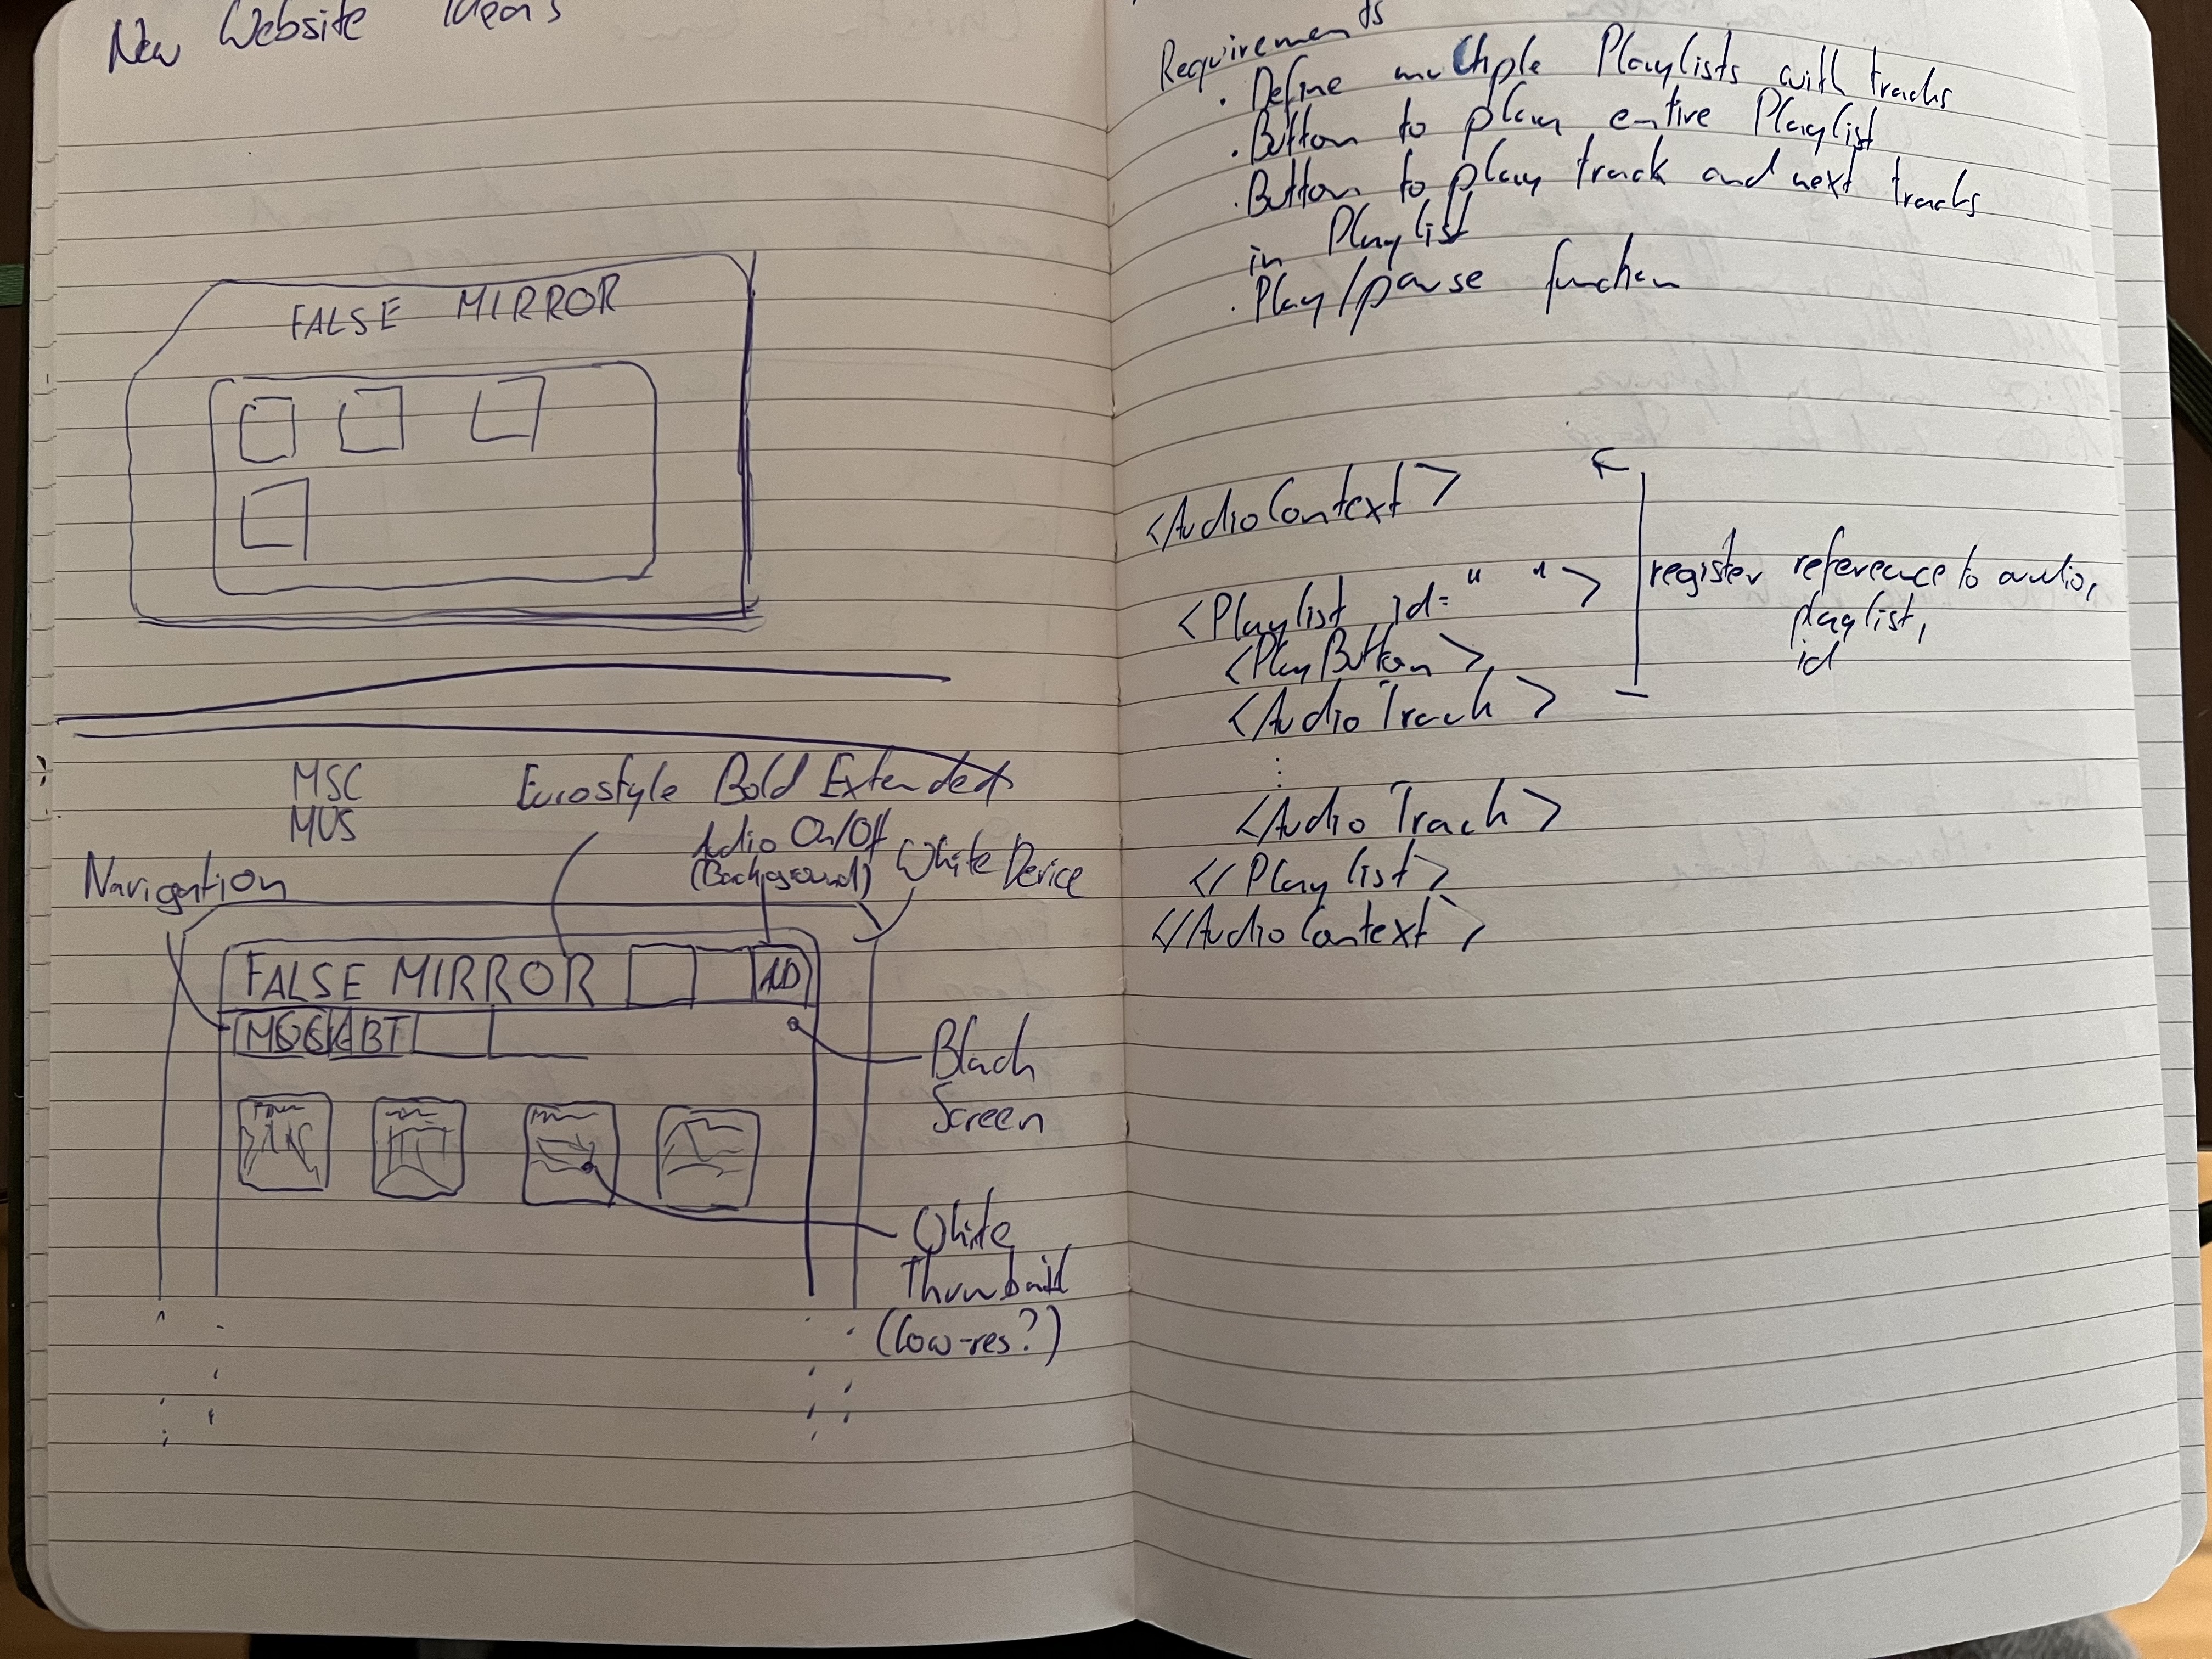 New Website Ideas
FALSE MIRROR
MSC
MUS
Eurostyle Bold Extended
Audio On/Off
(Background)
White Device
Navigation
FALSE MIRROR
AD
ABT
Black
Screen
White
Thumbnail
(low-res?)
Requirements
· Define multiple Playlists with tracks
· Button to play entire Playlist
· Button to play track and next tracks
in Playlist
· Play/pause function
<AudioContext>
<Playlist id=" ">
<PlayButton>
<AudioTrack>
⋮
<AudioTrack>
</Playlist>
</AudioContext>
register reference to audio,
playlist,
id